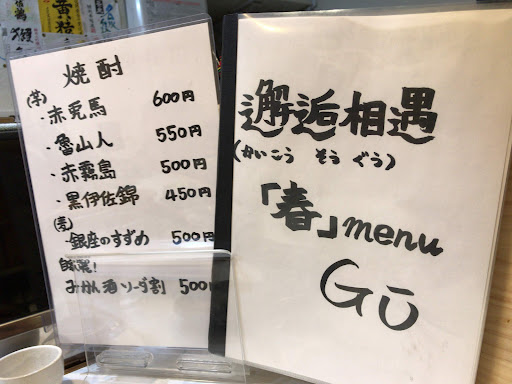 焼酎
(芋)
・赤兎馬 600円
・魯山人 550円
・赤霧島 500円
・黒伊佐錦 450円
(麦)
・銀座のすずめ 500円
みかん酒ソーダ割 500
邂逅相遇
(かいこう そう ぐう)
「春」menu
Gū